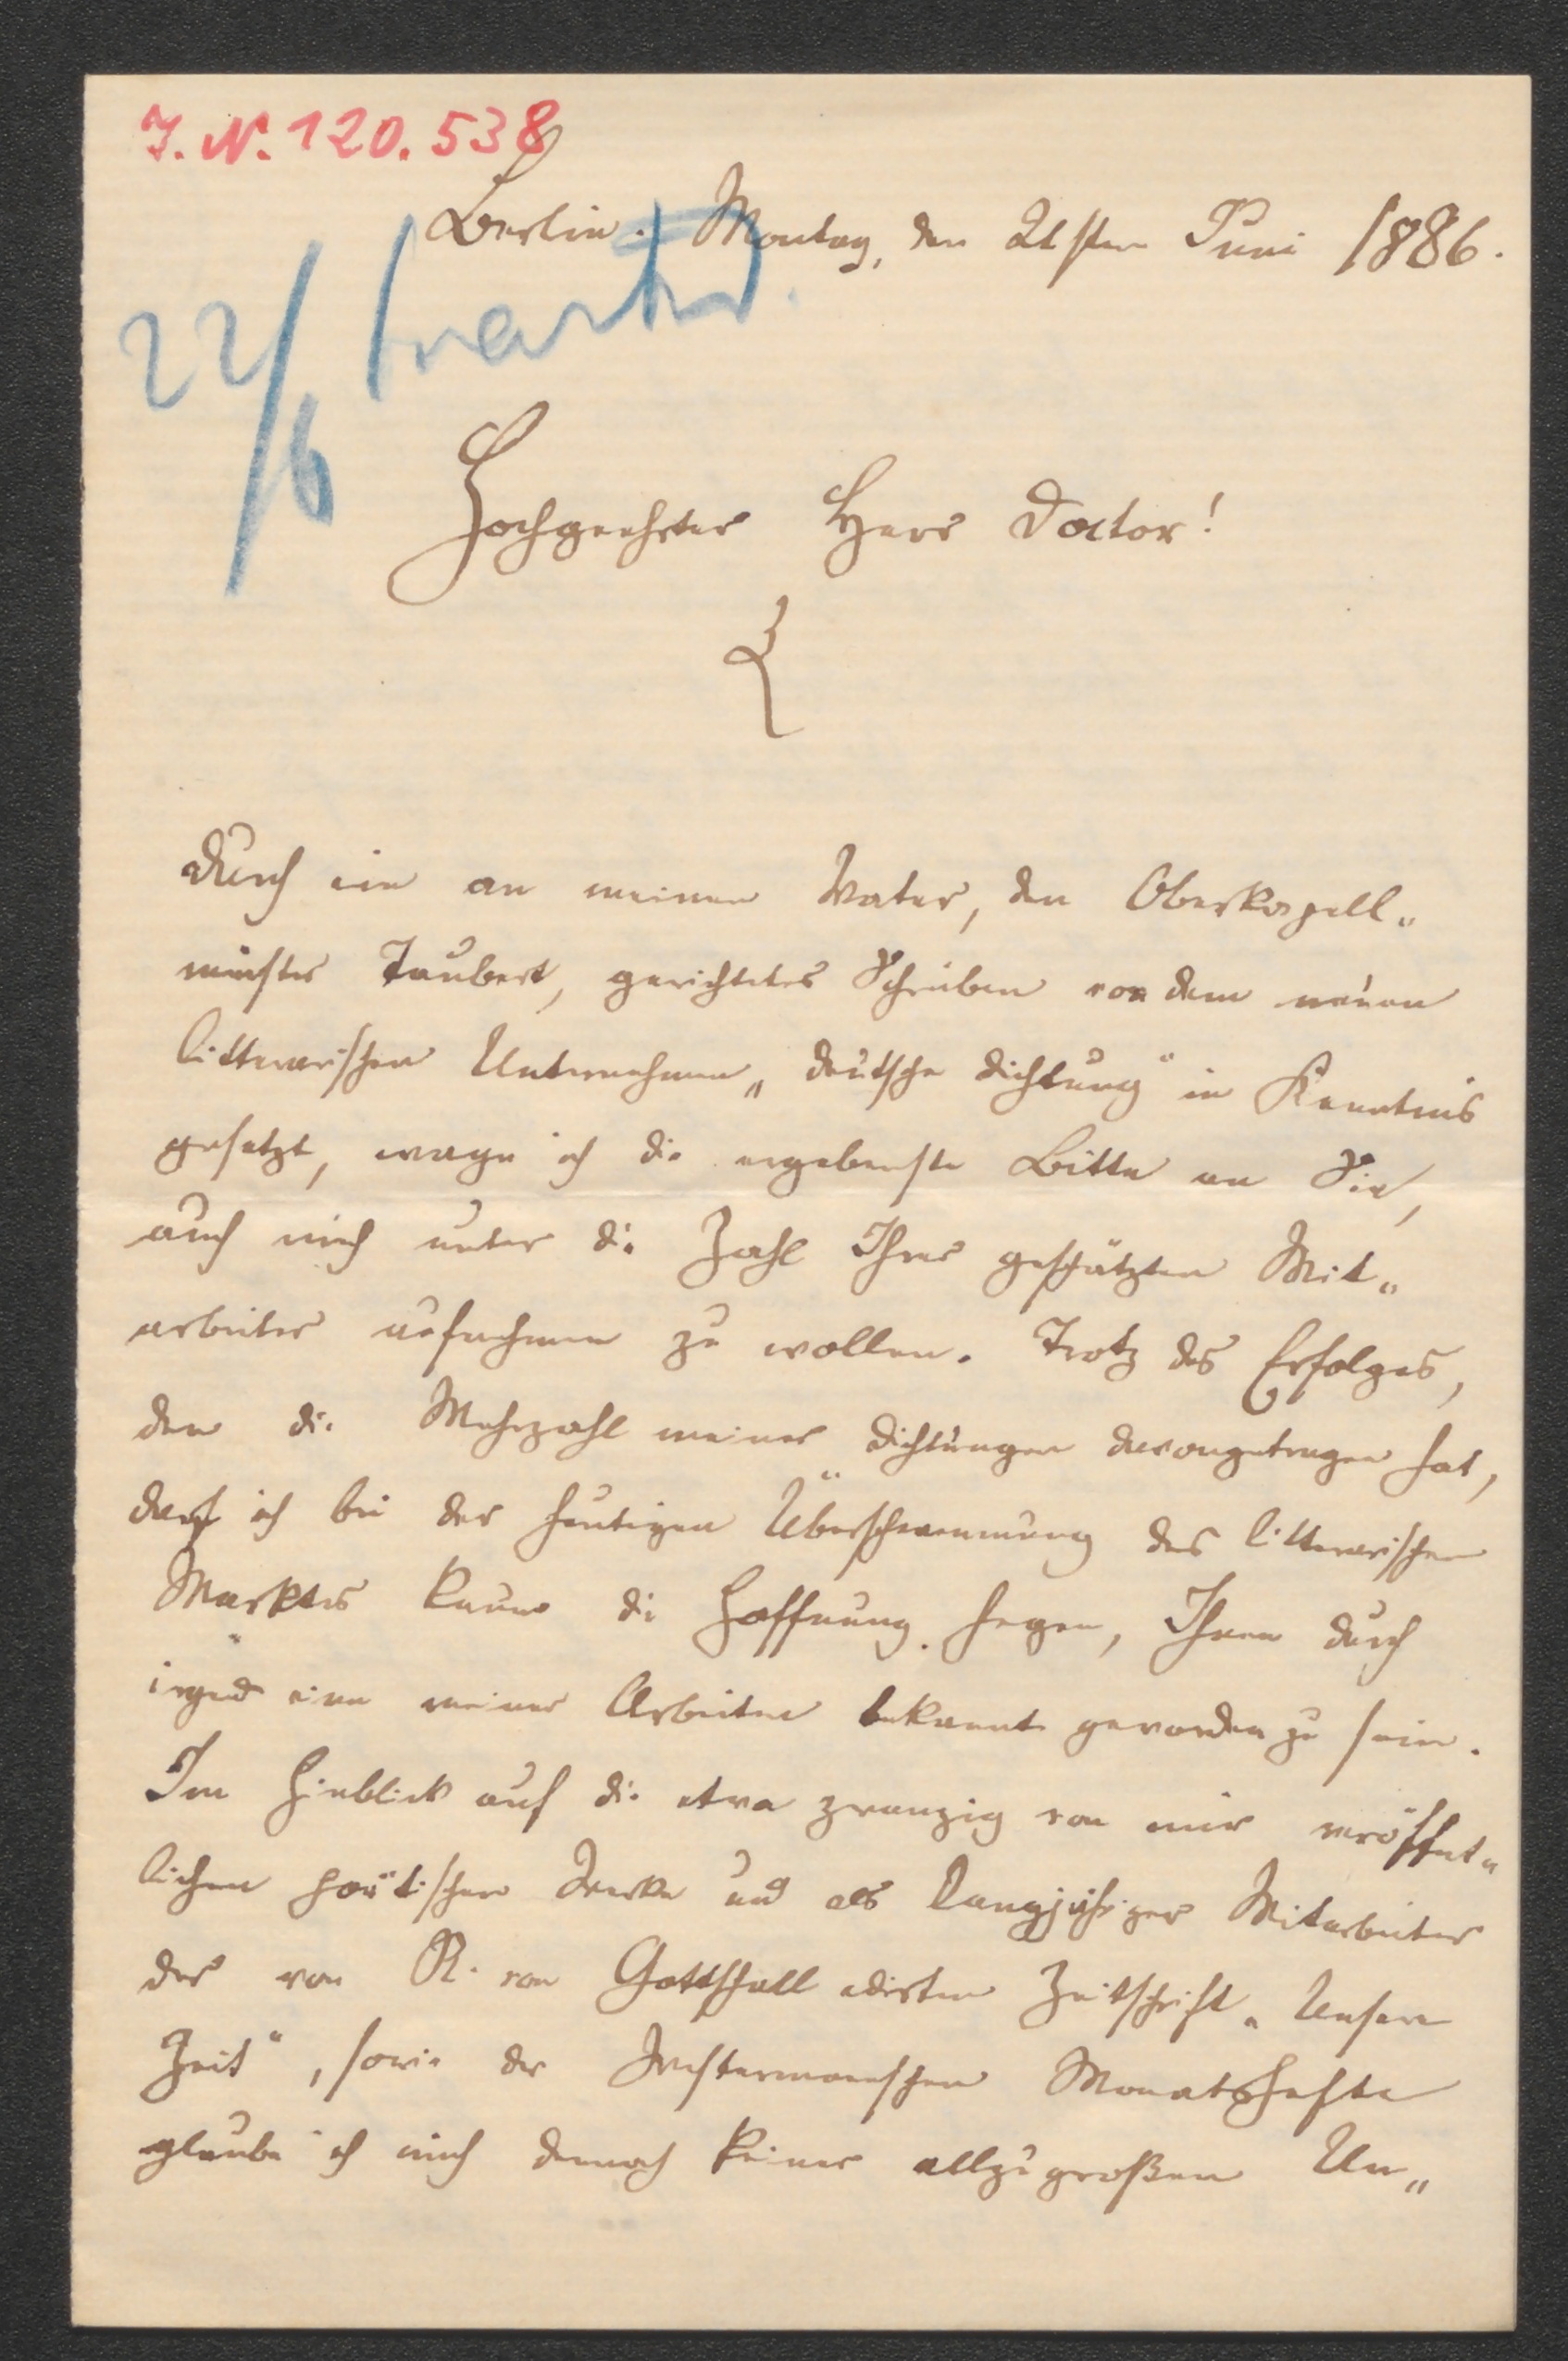 J. N. 120.538
Berlin. Montag, den 21sten Juni 1886.
22/6
Hochgeehrter Herr Doctor!
Durch ein an meinen Vater, den Oberkapell„
meister Taubert, gerichtetes Schreiben von dem neuen
litterarischen Unternehmen „Deutsche Dichtung“ in Kenntnis
gesetzt, wage ich die ergebenste Bitte an Sie,
auch mich unter die Zahl Ihrer geschätzten Mit„
arbeiter aufnehmen zu wollen. Trotz des Erfolges,
den die Mehrzahl meiner Dichtungen davongetragen hat,
darf ich bei der heutigen Überschwemmung des litterarischen
Marktes kaum die Hoffnung hegen, Ihnen durch
irgend eine meiner Arbeiten bekannt geworden zu sein.
Im Hinblick auf die etwa zwanzig von mir veröffent„
lichen poëtischen Werke und als langjähriger Mitarbeiter
der von R. von Gottschall edirten Zeitschrift „Unsere
Zeit“, sowie der Westermannschen Monatshefte
glaube ich mich dennoch keiner allzugroßen Un„